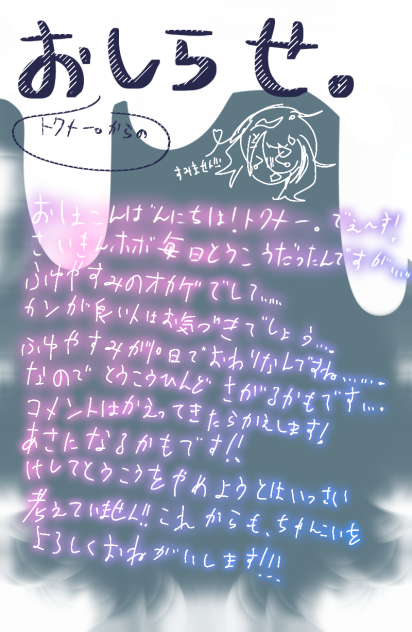 おしらせ。
トクナー。からの
すみません!!
おはこんばんにちは!トクナー。でぇ〜す!
さいきんホボ毎日とうこうだったんですが....
ふゆやすみのオカゲでして....
カンが良い人はお気づきでしょう...。
ふゆやすみが10日でおわりなんですね......。
なのでとうこうひんど さがるかもです...。
コメントはかえってきたらかえします!
あさになるかもです!!
けしてとうこうをやめようとはいっさい
考えていません!!これからも、ちゃんこいを
よろしくおねがいします!!!